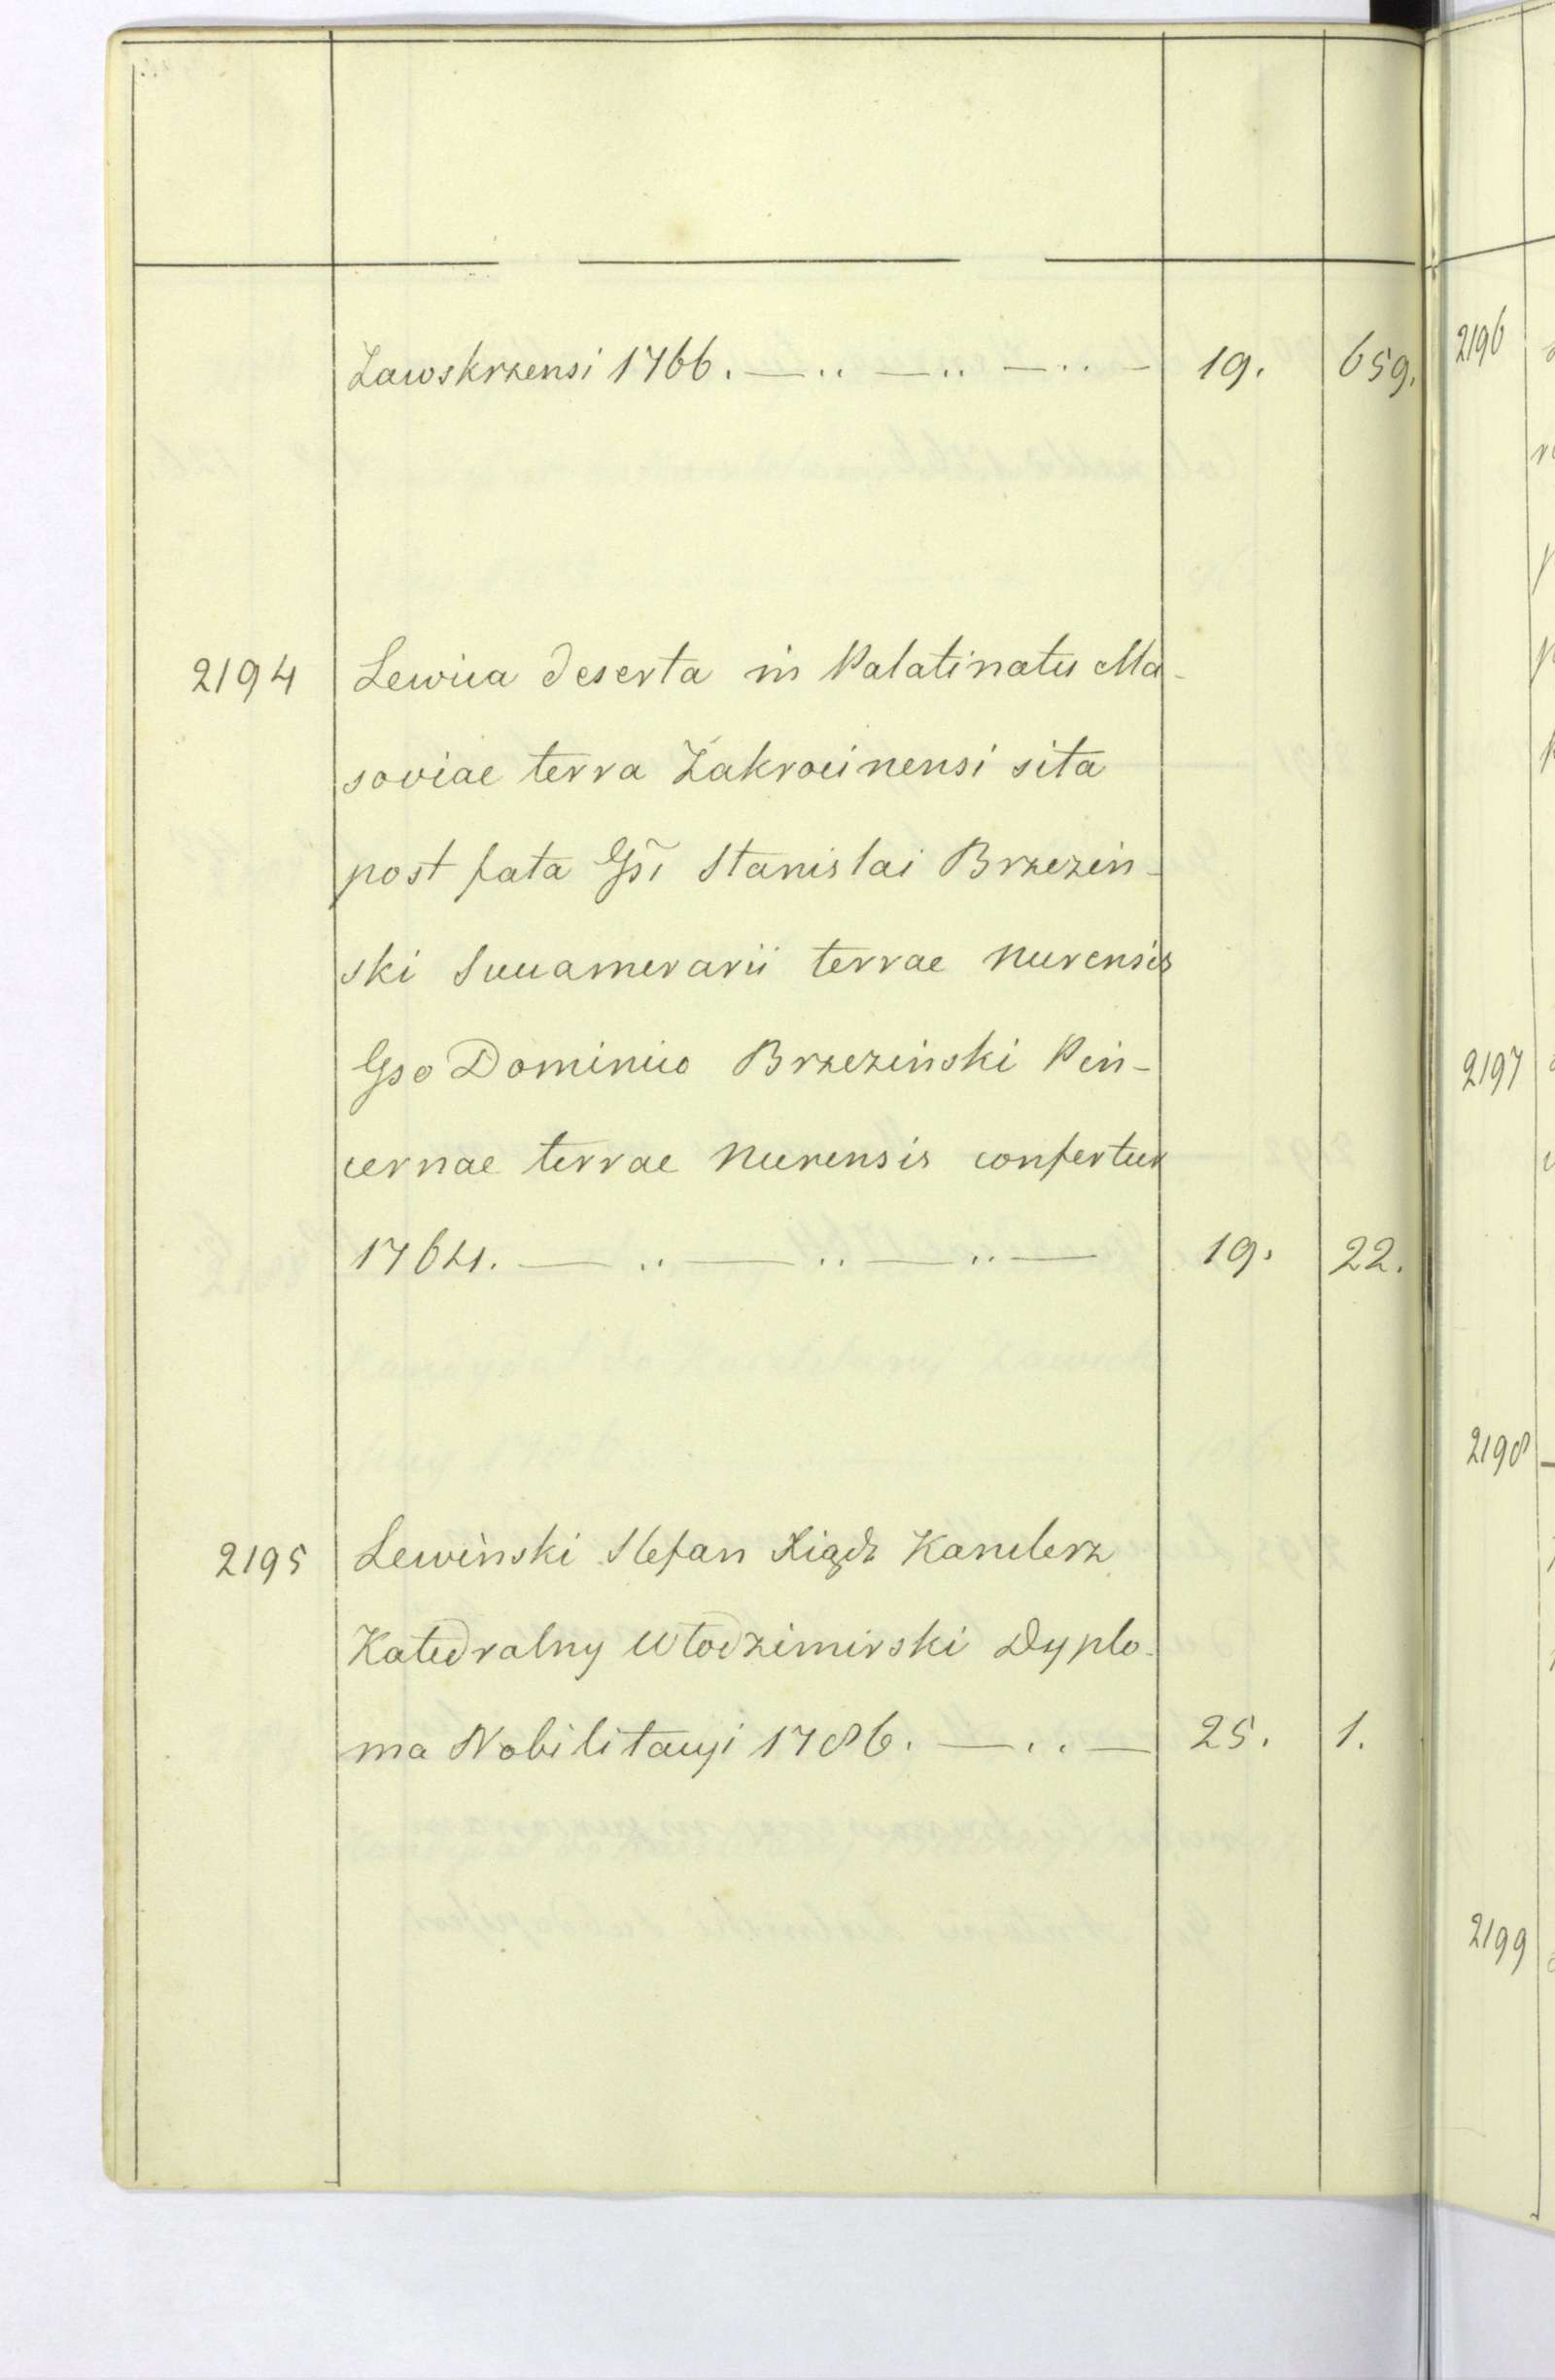 Zawskrzensi 1766. — .. — .. — .. — 19. 659.
2194 Lewica deserta in Palatinatu Ma-
soviae terra Zakrocinensi sita
post fata Gsi Stanislai Brzezin-
ski Succamerarii terrae Nurensis
Gso Dominico Brzezinski Pin-
cernae terrae Nurensis confertur
1764. — .. — .. — .. — 19. 22.
2195 Lewinski Stefan Xiądz Kanclerz
Katedralny Włodzimirski Dyplo-
ma Nobilitacyi 1786. — .. — 25. 1.
2196
2197
2198
2199